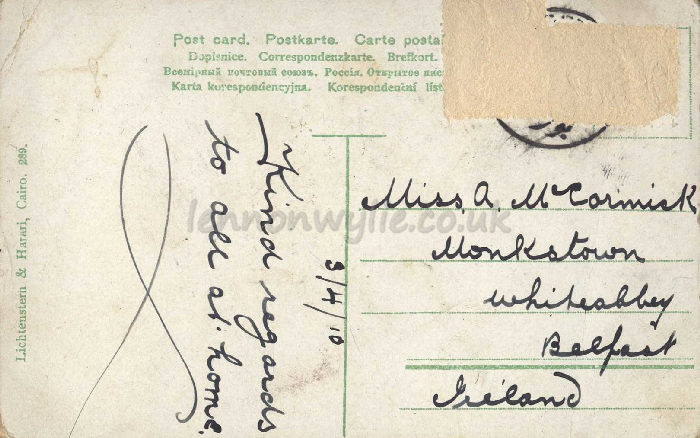 Post card. Postkarte. Carte postal
Dopisnice. Correspondenzkarte. Brefkort.
Всемірный почтовый союзъ. Россія. Открытое пис
Karta korespondencyjna. Korespondenční líst
Lichtenstern & Harari, Cairo. 289.
Kind regards
to all at home.
3/4/10
Miss A. McCormick
Monkstown
Whiteabbey
Belfast
Ireland
lennonwylie.co.uk